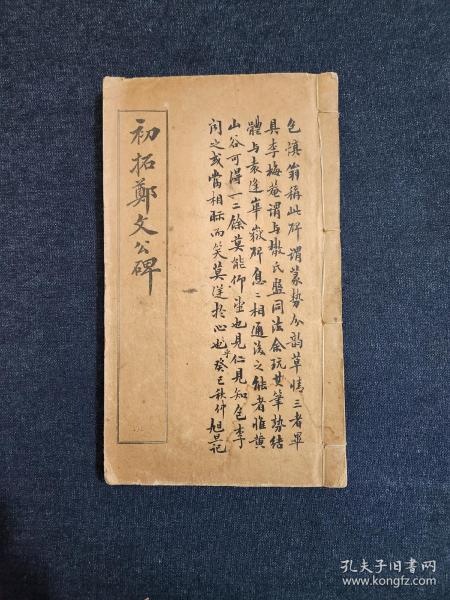 初拓鄭文公碑
包慎翁稱此碑謂篆勢分韵草情三者畢
具李梅庵謂与散氏盤同法余玩其筆勢結
體与袁逢華嶽碑息〻相通後之能者惟黄
山谷可得一二餘莫能仰望也見仁見知包李
聞之或當相眎而笑莫逆於心也乎癸巳秋仲旭旦記
孔夫子旧书网
www.kongfz.com